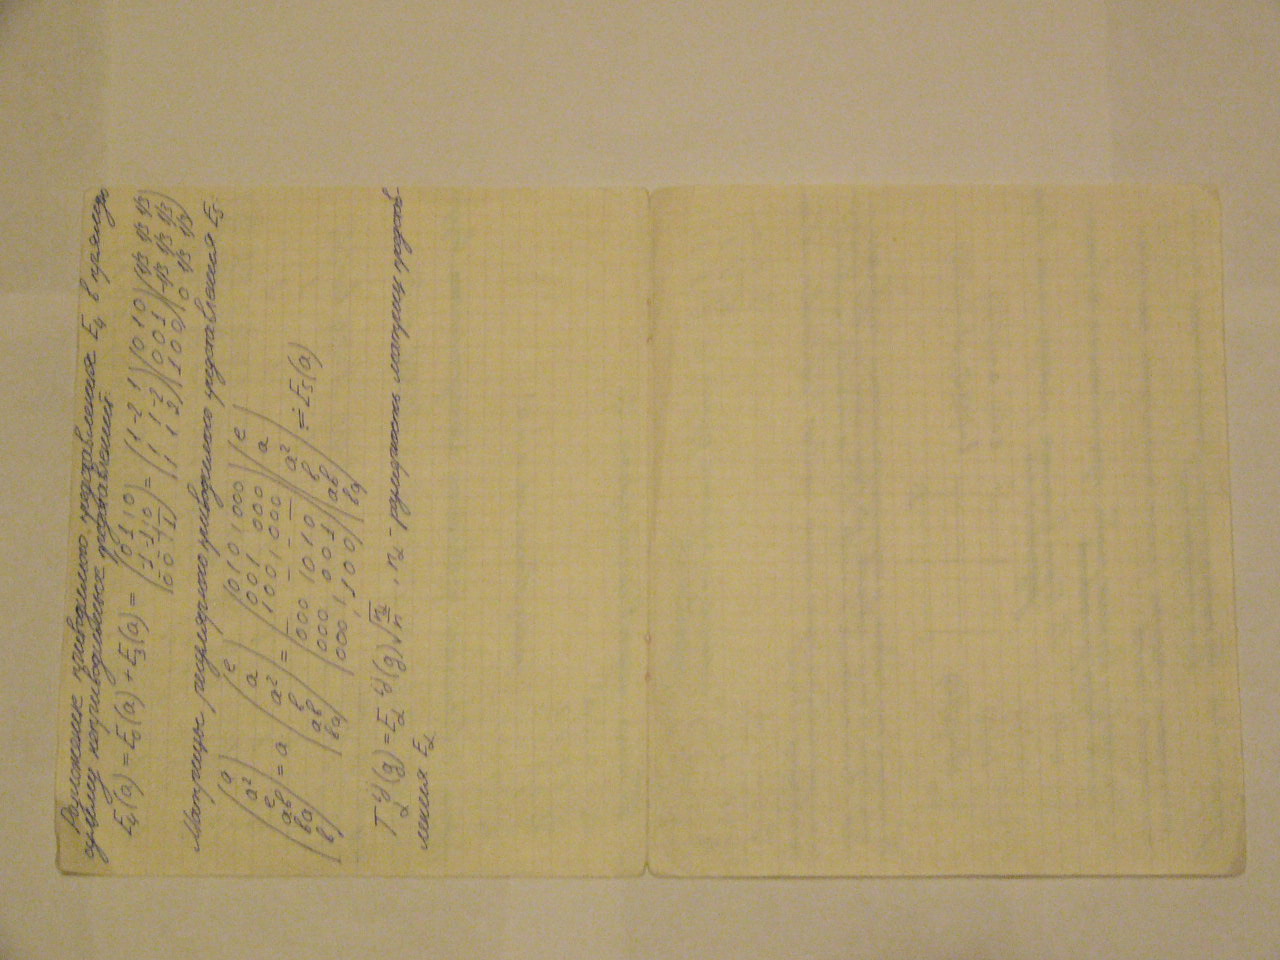 Разложение приводимого представления E₄ в прямую
сумму неприводимых представлений
E₄(a) = E₀(a) + E₃(a) = ( 0 1 | 0 ; -1 -1 | 0 ; 0 0 | 1 ) = ( 1 -2 1 ; 1 1 -2 ; 1 1 2 ) ( 0 1 0 ; 0 0 1 ; 1 0 0 ) ( 1/3 1/3 1/3 ; -1/3 1/3 1/3 ; 0 1/3 1/3 )
Матрицы регулярного приводимого представления E₅:
( a ; a² ; e ; ab ; ba ; b ) = a ( e ; a ; a² ; b ; ab ; ba ) = ( 0 1 0 | 0 0 0 ; 0 0 1 | 0 0 0 ; 1 0 0 | 0 0 0 ; 0 0 0 | 0 1 0 ; 0 0 0 | 0 0 1 ; 0 0 0 | 1 0 0 ) ( e ; a ; a² ; b ; ab ; ba ) = E₅(a)
T_α^{ij}(g) = E_α^{ij}(g) √(n_α/n) , n_α - размерность матриц представ-
ления E_α